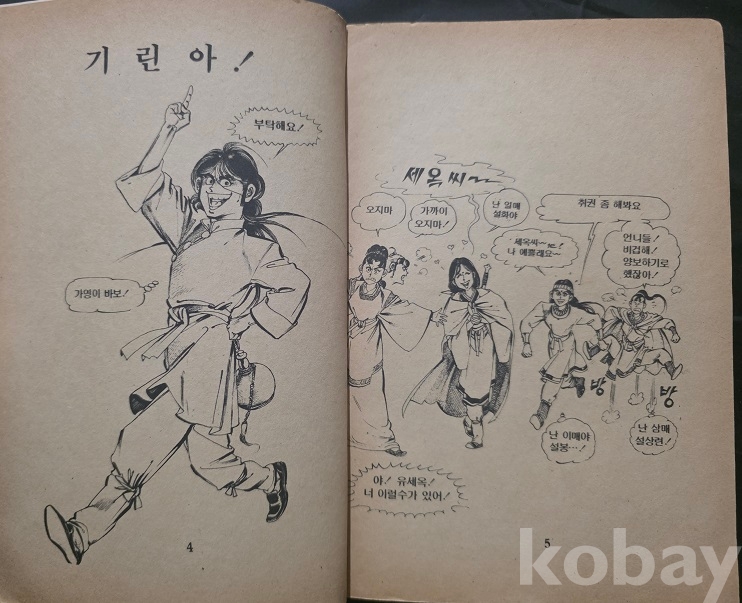 기 린 아!
부탁해요!
가영이 바보!
4
세옥씨
오지마
가까이
오지마!
난 일매
설화야
취권 좀 해봐요
세옥씨~
나 예쁠래요~
언니들!
비겁해!
양보하기로
했잖아!
방
방
난 이매야
설봉…!
난 삼매
설상련!
야! 유세옥!
너 이럴수가 있어!
5
kobay